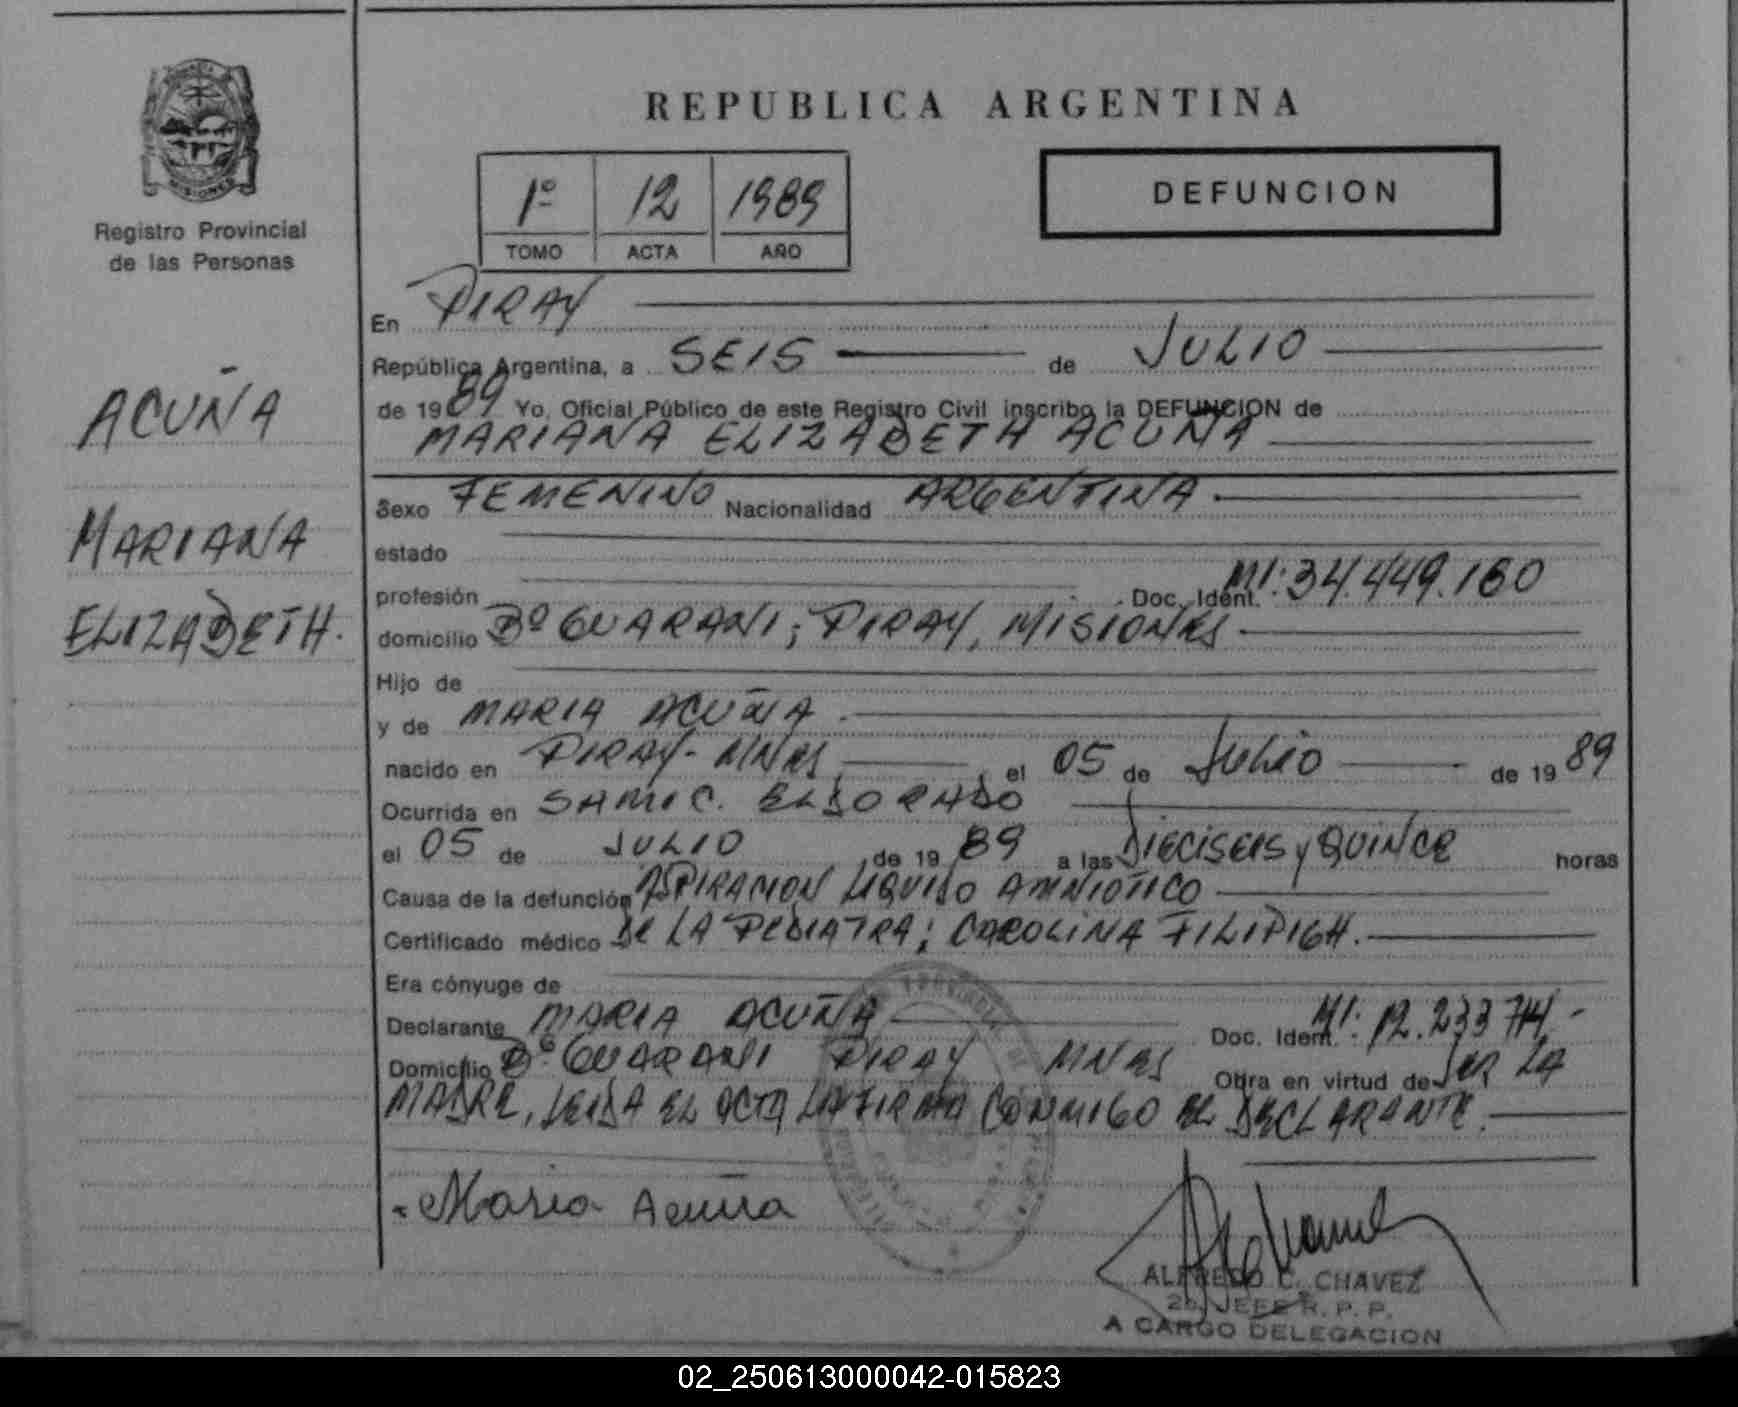 REPUBLICA ARGENTINA
MISIONES
Registro Provincial
de las Personas
1º 12 1989
TOMO ACTA AÑO
DEFUNCION
ACUÑA
MARIANA
ELIZABETH.
En PIRAY
República Argentina, a SEIS de JULIO
de 1989 Yo, Oficial Público de este Registro Civil inscribo la DEFUNCION de
MARIANA ELIZABETH ACUÑA
Sexo FEMENINO Nacionalidad ARGENTINA.
estado
profesión Doc. Ident. MI: 34.449.160
domicilio Bº GUARANI; PIRAY, MISIONES
Hijo de
y de MARIA ACUÑA.
nacido en PIRAY- MNES, el 05 de JULIO de 1989
Ocurrida en SAMIC. ELDORADO
el 05 de JULIO de 1989 a las DIECISEIS y QUINCE horas
Causa de la defunción ASPIRACION LIQUIDO AMNIOTICO
Certificado médico DE LA PEDIATRA; CAROLINA FILIPIGH.
Era cónyuge de
Declarante MARIA ACUÑA Doc. Ident. MI: 12.233714.-
Domicilio Bº GUARANI PIRAY MNES Obra en virtud de SER LA
MADRE, LEIDA EL ACTA LA FIRMA CONMIGO EL DECLARANTE.
Maria Acuña
ALFREDO C. CHAVEZ
2º JEFE R. P. P.
A CARGO DELEGACION
02_250613000042-015823